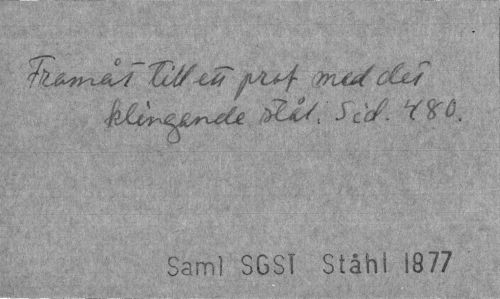 Framåt till ett prof med det
klingande stål. Sid. 480.
Saml SGST Ståhl 1877